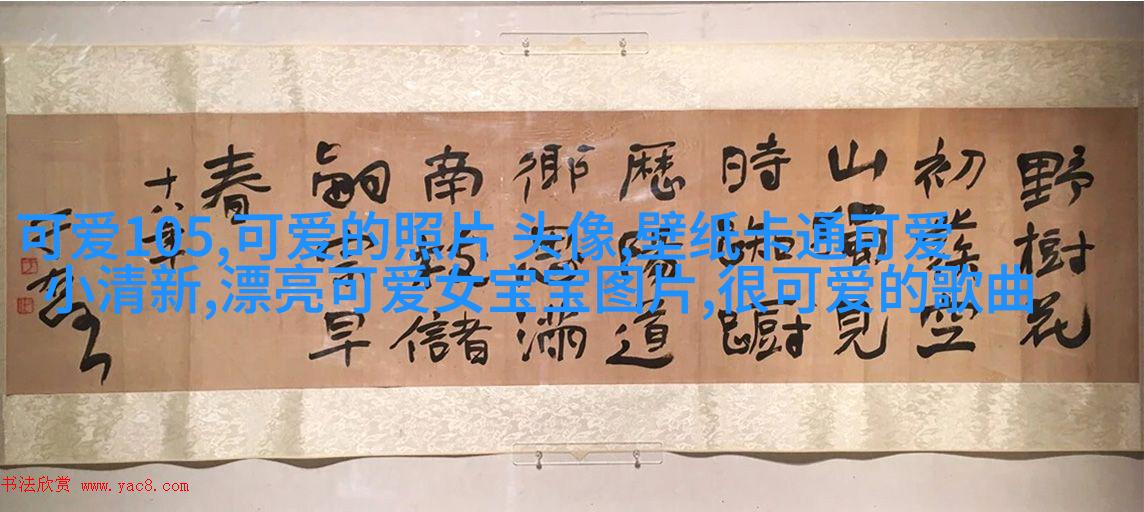 野樹花
初發空
山獨見
時踟躕
歷陽道
鄉思滿
南枝儲
嗣宗早
春
十八年
可爱105,可爱的照片 头像,壁纸卡通可爱
小清新,漂亮可爱女宝宝图片,很可爱的歌曲
书法欣赏 www.yac8.com